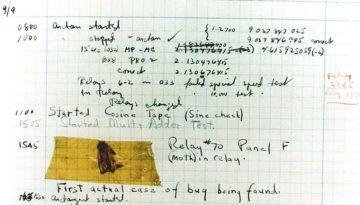 9/9
0800 antan started
1000 " stopped - antan ✓ { 1.2700 9.037 847 025
9.037 846 995 correct
13"uc (032) MP - MC 4.615925059(-2)
(033) PRO 2 2.130476415
correct 2.130676415
Relays 6-2 in 033 failed special speed test
in Relay " 10.000 test.
Relays changed
1100 Started Cosine Tape (Sine check)
1525 Started Multi Adder Test.
1545 Relay #70 Panel F
(Moth) in relay.
First actual case of bug being found.
antangent started.